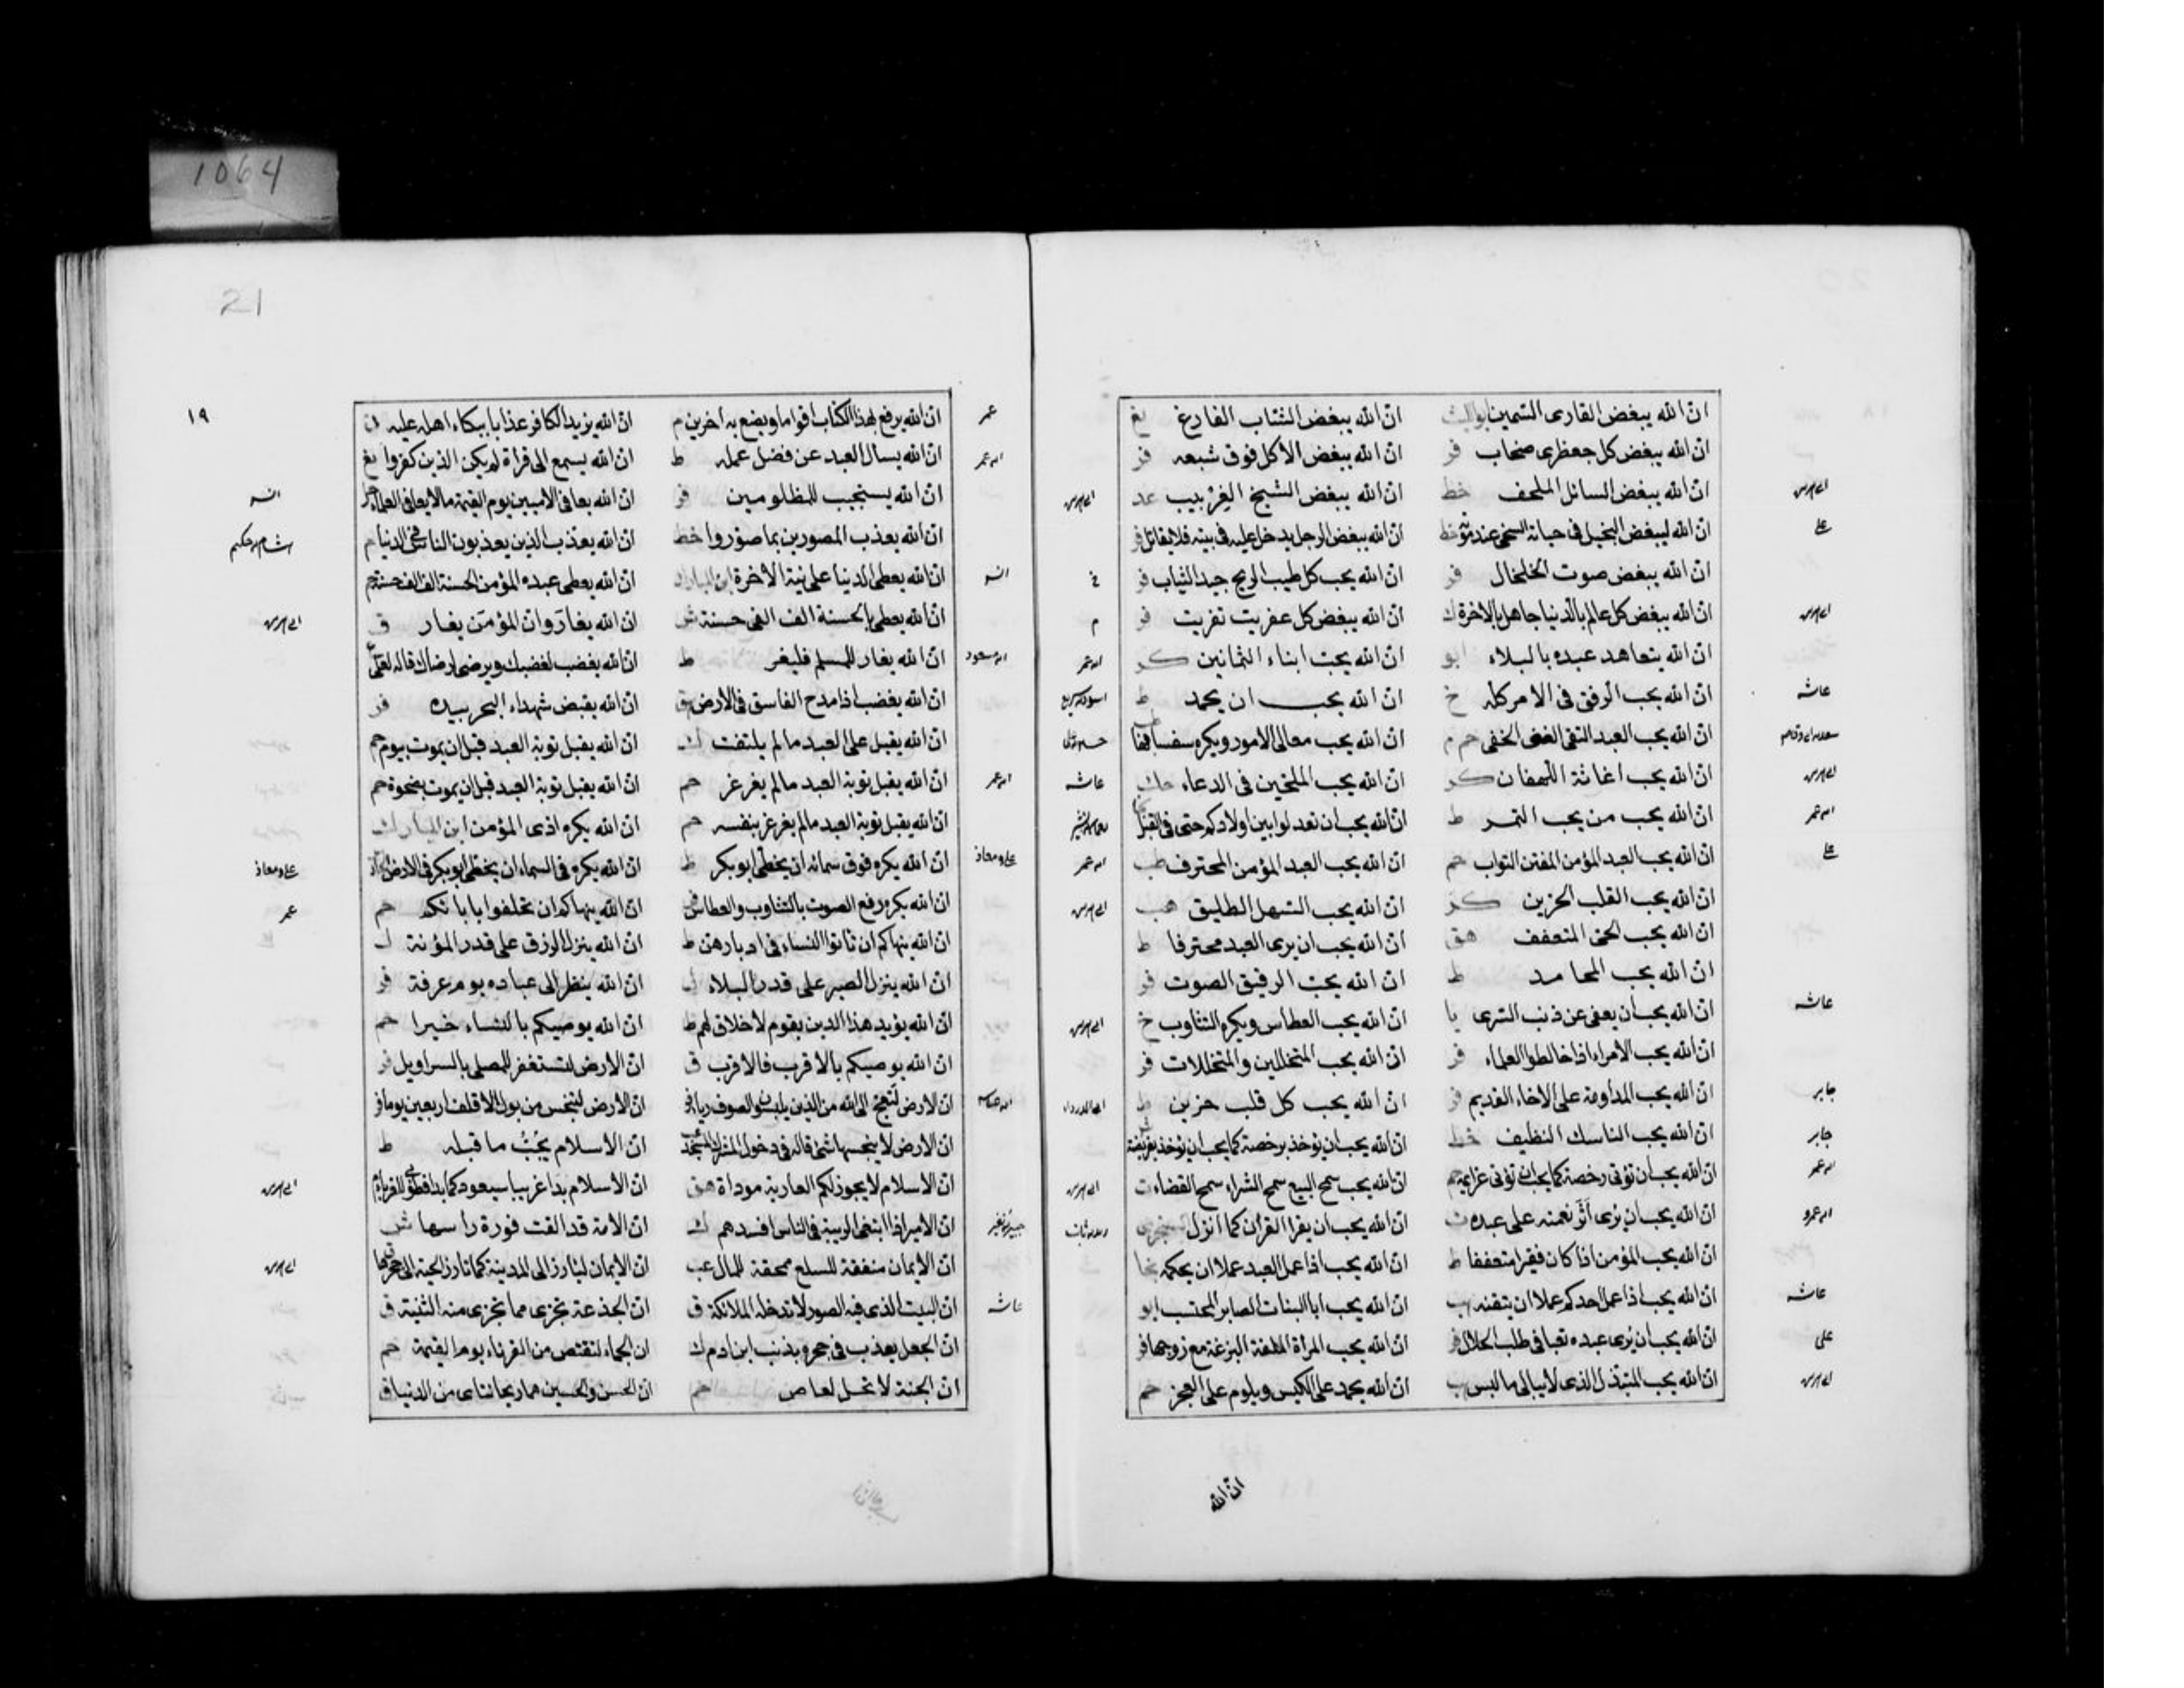 1064
ان الله يبغض القارى السمين ابوالليث ان الله يبغض الشاب الفارغ يغ
ان الله يبغض كل جعظرى صخاب فر ان الله يبغض الاكل فوق شبعه فر
ان الله يبغض السائل الملحف خط ان الله يبغض الشيخ الغربيب عد
ان الله ليبغض البخيل فى حياته السخى عند موته خط ان الله يبغض الرجل يدخل عليه فى بيته فلا يقاتل فر
على
ان الله يبغض صوت الخلخال فر ان الله يحب كل طيب الريح جيد الثياب فر
ان الله يبغض كل عالم بالدنيا جاهل بالاخرة ك ان الله يبغض كل عفريت نفريت فر
م
ان الله يتعاهد عبده بالبلاء ابو ان الله يحب ابناء الثمانين كر
ان الله يحب الرفق فى الامر كله خ ان الله يحب ان يحمد ط
عائشه
ان الله يحب العبد التقى الغنى الخفى حم م ان الله يحب معالى الامور ويكره سفسافها
ان الله يحب اغاثة اللهفان كر ان الله يحب الملحين فى الدعاء
عائشه
ان الله يحب من يحب التمر ط ان الله يحب ان تعدلوا بين اولادكم حتى فى القبل
ان الله يحب العبد المؤمن المفتن التواب حم ان الله يحب العبد المؤمن المحترف طب
على
ان الله يحب القلب الحزين كر ان الله يحب السهل الطليق هب
ان الله يحب الحيى المتعفف هق ان الله يحب ان يرى العبد محترفا ط
ان الله يحب المحامد ط ان الله يحب الرفيق الصوت فر
ان الله يحب ان يعفى عن ذنب السرى يا ان الله يحب العطاس ويكره التثاوب خ
عائشه
ان الله يحب الامراء اذا خالطوا العلماء فر ان الله يحب المتخللين والمتخللات فر
ان الله يحب المداومة على الاخاء القديم فر ان الله يحب كل قلب حزين ط
جابر
ان الله يحب الناسك النظيف خط ان الله يحب ان يؤخذ برخصه كما يحب ان يؤخذ بفريضته
جابر
ان الله يحب ان تؤتى رخصه كما يحب ان تؤتى عزايمه حم ان الله يحب سمح البيع سمح الشراء سمح القضاء ت
ان الله يحب ان يرى اثر نعمته على عبده ت ان الله يحب ان يقرا القران كما انزل
ان الله يحب المؤمن اذا كان فقيرا متعففا ط ان الله يحب اذا عمل العبد عملا ان يحكمه
ان الله يحب اذا عمل احدكم عملا ان يتقنه هب ان الله يحب ابا البنات الصابر المحتسب ابو
عائشه
ان الله يحب ان يرى عبده تعبا فى طلب الحلال فر ان الله يحب المراة الملقة البزعة مع زوجها فر
على
ان الله يحب المتبذل الذى لا يبالى ما لبس هب ان الله يحمد على الكيس ويلوم على العجز حم
ان الله
21
١٩
ان الله يرفع بهذا الكتاب اقواما ويضع به اخرين م ان الله يزيد الكافر عذابا ببكاء اهله عليه ن
عمر
ان الله يسال العبد عن فضل عمله ط ان الله يسمع الى قراة لم يكن الذين كفروا يغ
ان الله يستجيب للمظلومين فر ان الله يعافى الاميين يوم القيمة ما لا يعافى العلماء
ان الله يعذب المصورين بما صوروا خط ان الله يعذب الذين يعذبون الناس فى الدنيا م
ان الله يعطى الدنيا على نية الاخرة ابن المبارك ان الله يعطى عبده المؤمن الحسنة الف الف حسنة حم
ان الله يعطى بالحسنة الف الفى حسنة ش ان الله يغار وان المؤمن يغار ق
ان الله يغار للمسلم فليغر ط ان الله يغضب لغضبك ويرضى لرضاك قاله لعلى
ان الله يغضب اذا مدح الفاسق فى الارض هق ان الله يقبض شهداء البحر بيده فر
ان الله يقبل على العبد ما لم يلتفت ك ان الله يقبل توبة العبد قبل ان يموت بيوم حم
ان الله يقبل توبة العبد ما لم يغرغر حم ان الله يقبل توبة العبد قبل ان يموت بضحوة حم
ان الله يقبل توبة العبد ما لم يغرغر بنفسه حم ان الله يكره اذى المؤمن ابن المبارك
ان الله يكره فوق سمائه ان يخطى ابو بكر ط ان الله يكره فى السماء ان يخطى ابو بكر فى الارض
على ومعاذ
ان الله يكره رفع الصوت بالتثاوب والعطاس ان الله ينهاكم ان تحلفوا بابائكم حم
عمر
ان الله ينهاكم ان تاتوا النساء فى ادبارهن ط ان الله ينزل الرزق على قدر المؤنة ل
ان الله ينزل الصبر على قدر البلاء ل ان الله ينظر الى عباده يوم عرفة فر
ان الله يؤيد هذا الدين بقوم لا خلاق لهم ط ان الله يوصيكم بالنساء خيرا حم
ان الله يوصيكم بالاقرب فالاقرب ق ان الارض لتستغفر للمصلى بالسراويل فر
ان الارض لتعج الى الله من الذين يلبسون الصوف رياء فر ان الارض لتنجس من بول الاقلف اربعين يوما فر
ان الارض لا ينجسها شئ قاله فى دخول المشرك المسجد ان الاسلام يجب ما قبله ط
ان الاسلام لا يجوز لكم العارية موداة هق ان الاسلام بدا غريبا سيعود كما بدا فطوبى للغرباء م
ان الامير اذا ابتغى الريبة فى الناس افسدهم ك ان الامة قد القت فروة راسها ش
ان الايمان منفقة للسلع محقة للمال عب ان الايمان ليارز الى المدينة كما تارز الحية الى جحرها
ان البيت الذى فيه الصور لا تدخله الملائكة ق ان الجذعة تجزى مما تجزى منه الثنية ق
عائشه
ان الجعل يعذب فى جحره بذنب ابن ادم ك ان الجماء لتقتص من القرناء يوم القيمة حم
ان الجنة لا تحل لعاص حم ان الحسن والحسين هما ريحانتاى من الدنيا ق